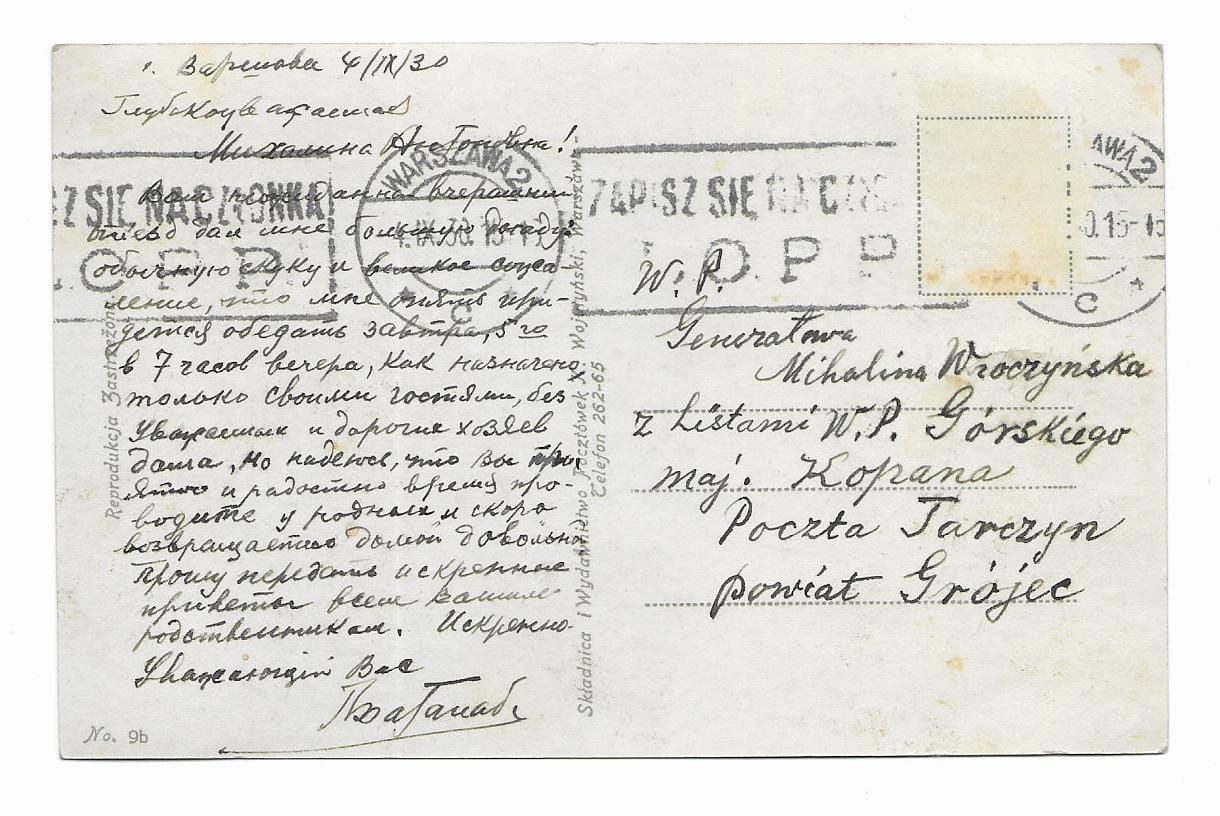 г. Варшава 4/IX/30
Глубокоуважаемая
Михалина Антоновна!
Ваш вчерашний
отъезд дал мне большую
скуку и великое
что мне опять при-
дется обедать завтра, 5го
в 7 часов вечера, как назначено
только своими гостями, без
уважаемых и дорогих хозяев
дома, но надеюсь, что Вы при-
ятно и радостно время про-
водите у родных и скоро
домой
Прошу передать искренние
приветы всем вашим
родственникам. Искренно
Уважающий Вас
No. 9b
Reprodukcja Zastrzeżona
Składnica i Wydawnictwo Pocztówek X. Wojtyński, Warszawa
Telefon 262-65
SZ SIĘ NA CZŁONKA
L.O.P.P.
WARSZAWA 2
4.IX.30.15-
* C *
ZAPISZ SIĘ NA CZŁ
L.O.P.P
AWA 2
0.15-
C *
W. P.
Generałowa
Mihalina Wroczyńska
z Listami W.P. Górskiego
maj. Kopana
Poczta Tarczyn
powiat Grójec